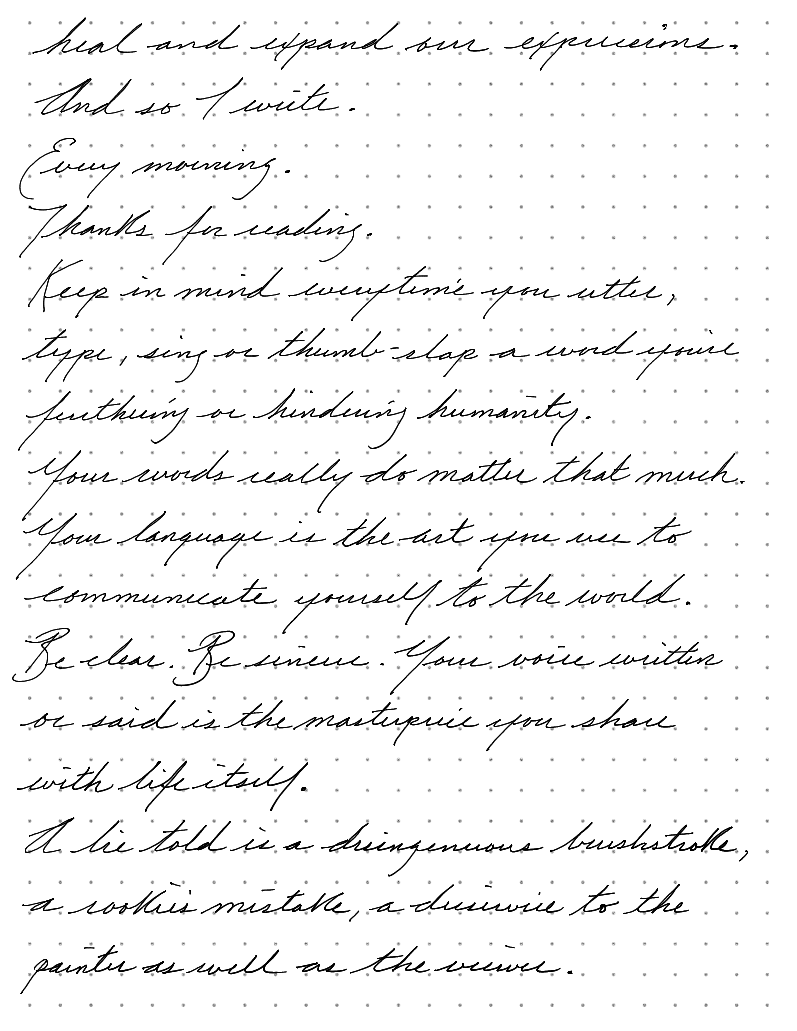 heal and expand our expressions.
And so I write.
Every morning.
Thanks for reading.
Keep in mind everytime you utter,
type, sing or thumb-slap a word you're
furthering or hindering humanity.
Your words really do matter that much.
Your language is the art you use to
communicate yourself to the world.
Be clear. Be sincere. Your voice written
or said is the masterpiece you share
with life itself.
A lie told is a disingenuous brushstroke,
a rookie's mistake, a disservice to the
painter as well as the viewer.